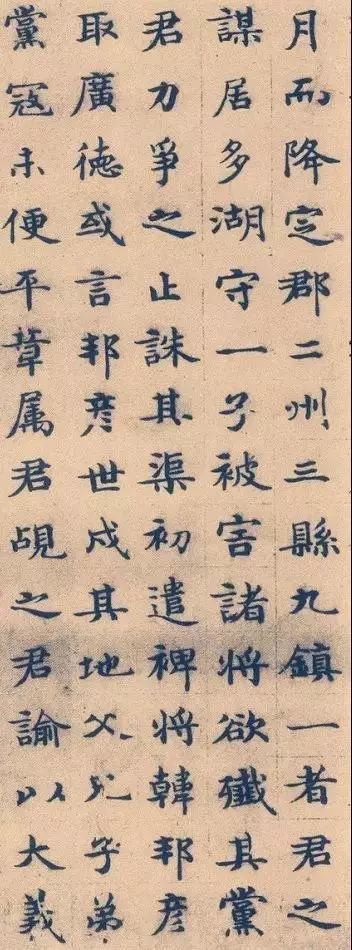 月而降定郡二州三縣九鎮一者君之
謀居多湖守一子被害諸將欲殲其黨
君力爭之止誅其渠初遣裨將韓邦彦
取廣德或言邦彦世戍其地父兄子弟
黨冦未便平属君覘之君諭以大義